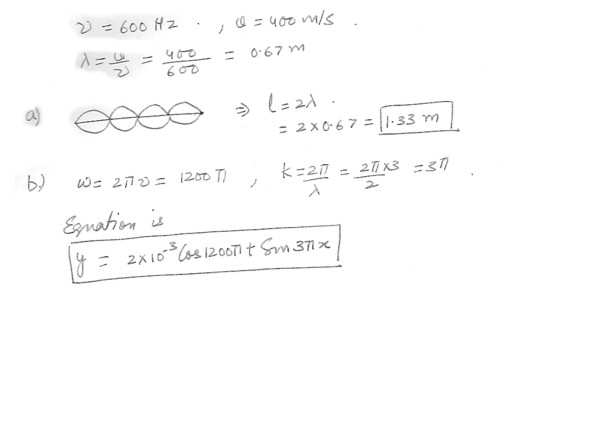 ν = 600 Hz . , v = 400 m/s .
λ = v/ν = 400/600 = 0.67 m
a) ⇒ l = 2λ .
= 2 × 0.67 = 1.33 m
b.) ω = 2πν = 1200 π , k = 2π/λ = 2π×3/2 = 3π .
Equation is
y = 2×10⁻³ Cos 1200π t Sin 3π x